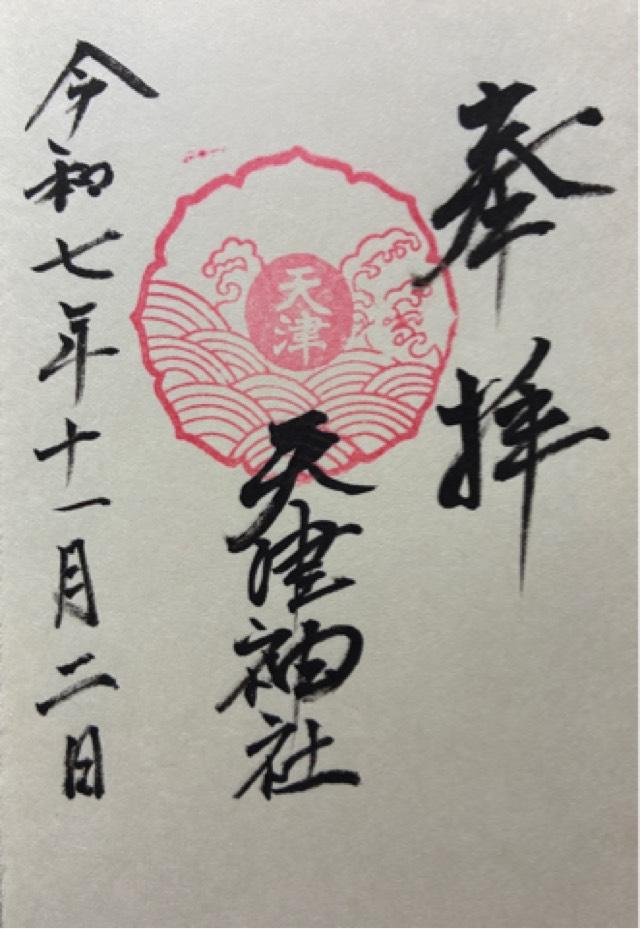 奉拝
天津
天津神社
令和七年十一月二日